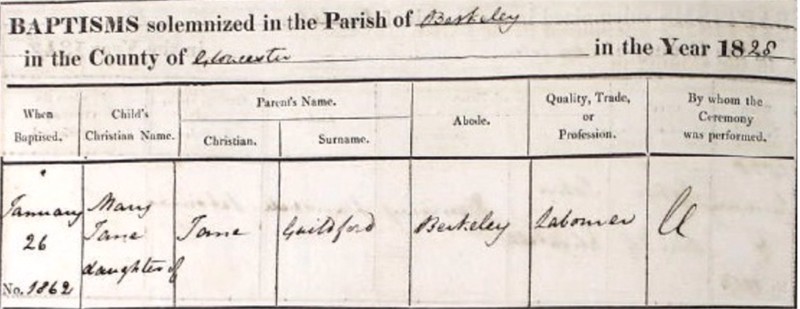 BAPTISMS solemnized in the Parish of Berkeley
in the County of Gloucester in the Year 1828
When Baptised.
Child's Christian Name.
Parent's Name.
Christian.
Surname.
Abode.
Quality, Trade, or Profession.
By whom the Ceremony was performed.
January
26
No. 1862
Mary
Jane
daughter of
Jane
Guildford
Berkeley
Labourer